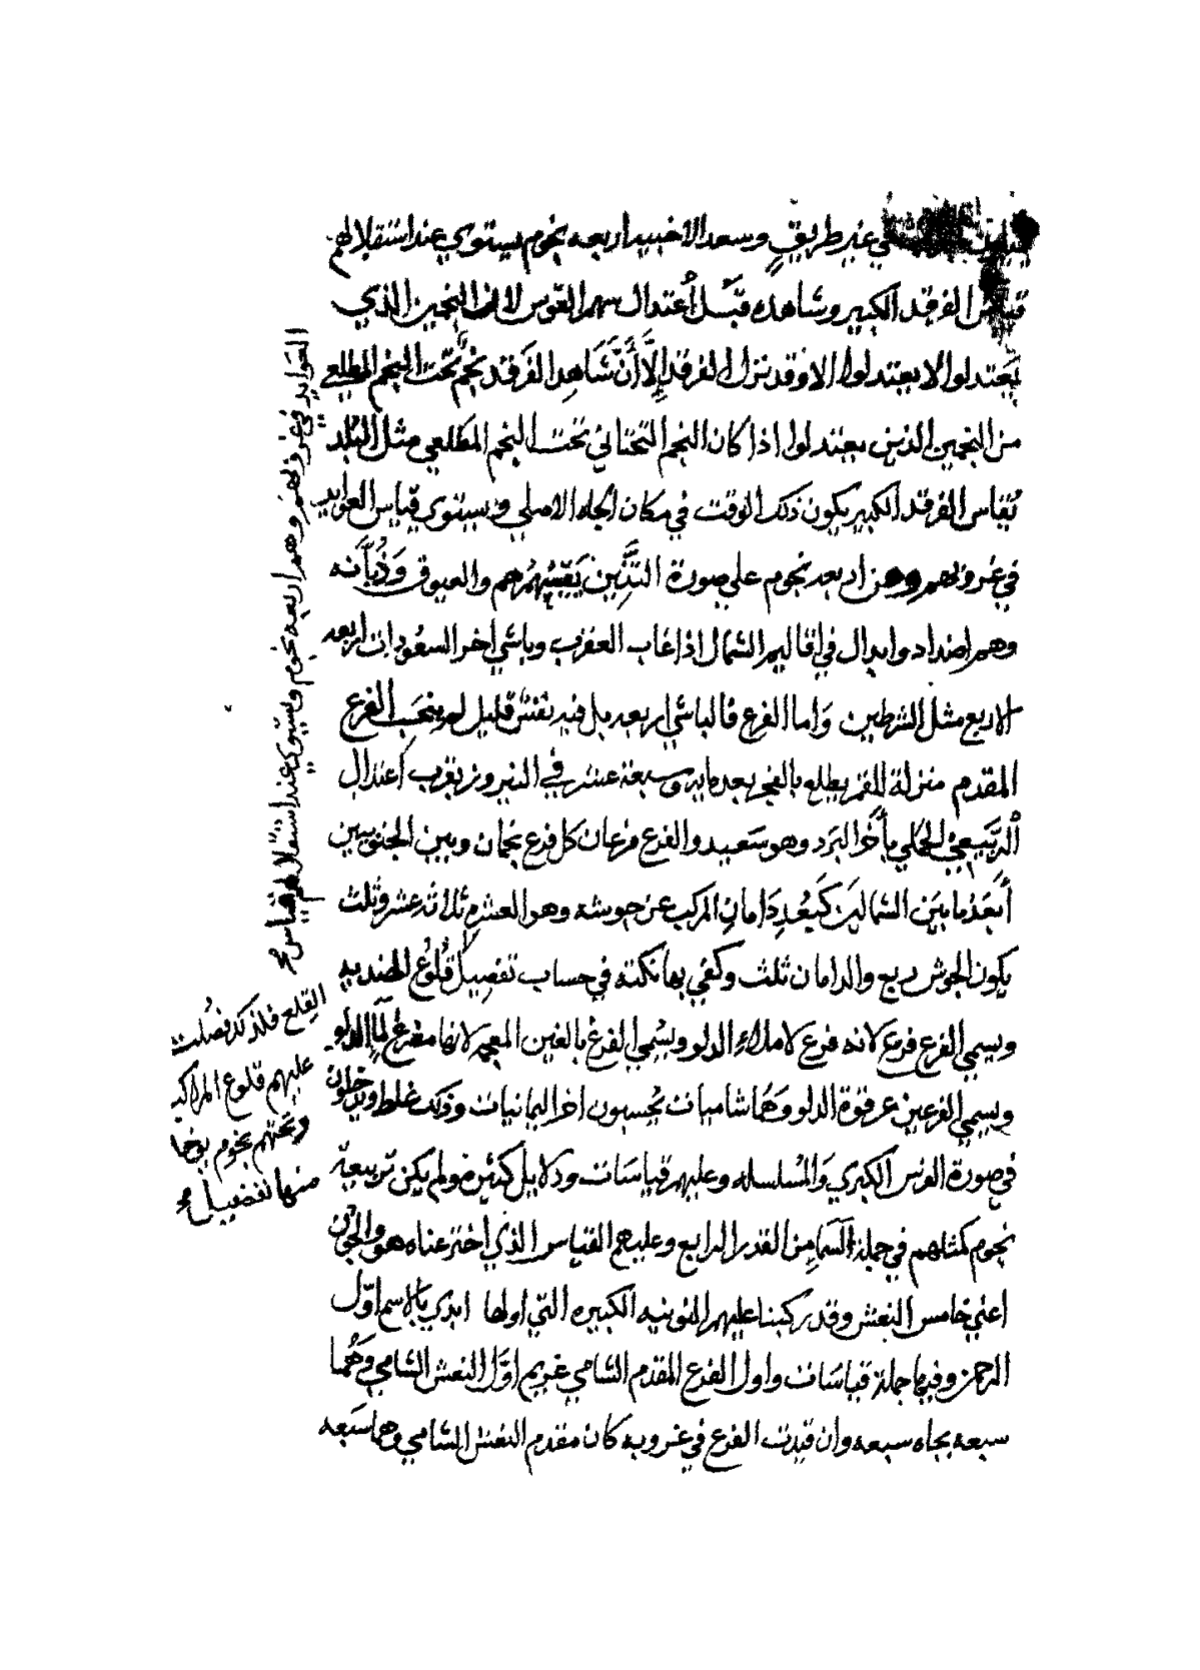 في غير طريق وسعد الاخبيه اربعه نجوم يستوي عند استقلالهم
قياس الفرقد الكبير وشاهده قبل أعتدال سهم القوس لان النجمين الذي
يعتدلوا لا يعتدلوا الا وقد نزل الفرقد إلّا أنّ شاهد الفرقد نجم تحت النجم المطلعي
من النجمين الذين يعتدلوا اذا كان النجم التحتاني تحت النجم المطلعي مثل البلد
تقاس الفرقد الكبير يكون ذلك الوقت في مكان الجاه الاصلي ويستوى قياس العوايد
في غروبهم اربعه نجوم على صورة التنّين والعيوق وذبّانه
وهم اضداد وابدال في اقاليم الشمال اذا غاب العقرب وباشي اخر السعودات اربعه
الاربع مثل الشرطين وَاما الفرع فالباشي اربعه بل فيه نقش قليل الفرع
المقدم منزلة القمر يطلع بالفجر بعد مايه وسبعة عشر في النيروز بقرب أعتدال
الرّبيعي البرد وهو سَعيد والفرع فرعان كل فرع نجمان وبين الجنوبيين
أبعَد ما بين الشماليين كبُعد دَامان المركب عن جوشه وهو العشر ثلاثه عشر وثلث
يكون الجوش بربع والدامان ثلث وكفي بها نكته في حساب تفصيل قُلوُع
ويسمي الفرع فرع لانه فرع لاملاء الدلو ويسُمي الفرغ بالغين المعجمه لانها مفرغ لمآ الدلو
ويسمي الفرعين عرقوة الدلو وَهُما شاميات يُحسبون اخر اليمانيات وذلك غلط ويدخلون
في صورة الفرس الكبري وَالمُسلسله وعليهم قياسَات ودلايل كثيره ولم يكن تربيعة
نجوم كمثلهم في جملة السّمآ مِن القدر الرابع وعليهم القياس الذي اخترعناه هو
اعني خامس النعش وقد ركبنا عليهم النونيه الكبيره التي اولها ابدي بالاسم اوّل
الرحمن وفيها جملة قياسَات واول الفرع المقدم الشامي غريم اوّل النعش الشامي وَهُما
سبعه بجاه سبعه وان قيدت الفرع في غروبه كان مقدم النعش الشامي وهما سَبعه
العوايد في غروبهم وهم اربعه نجوم ويستوي عند استقلالهم قياس
القلع فلذلك فصُلت
عليهم قلوع المراكب
وتحتهم نجوم يوخذ
منها تفضيل